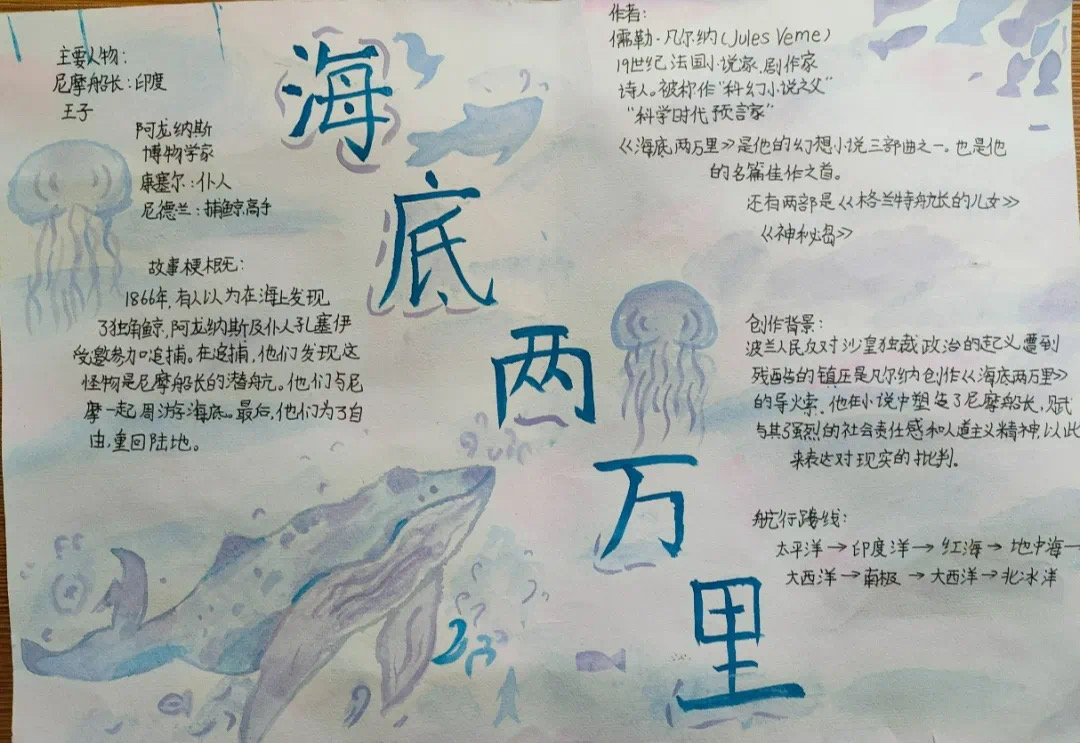 海底两万里
主要人物：
尼摩船长：印度
王子
阿龙纳斯
博物学家
康塞尔：仆人
尼德兰：捕鲸高手
故事梗概：
1866年，有人以为在海上发现
了独角鲸，阿龙纳斯及仆人孔塞伊
受邀参加追捕。在追捕，他们发现这
怪物是尼摩船长的潜航。他们与尼
摩一起周游海底。最后，他们为了自
由，重回陆地。
作者：
儒勒·凡尔纳(Jules Verne)
19世纪法国小说家，剧作家
诗人。被称作“科幻小说之父”
“科学时代预言家”
《海底两万里》是他的幻想小说三部曲之一。也是他
的名篇佳作之首。
还有两部是《格兰特船长的儿女》
《神秘岛》
创作背景：
波兰人民反对沙皇独裁政治的起义遭到
残酷的镇压是凡尔纳创作《海底两万里》
的导火索。他在小说中塑造了尼摩船长，赋
与其强烈的社会责任感和人道主义精神，以此
来表达对现实的批判。
航行路线：
太平洋→印度洋→红海→地中海→
大西洋→南极→大西洋→北冰洋